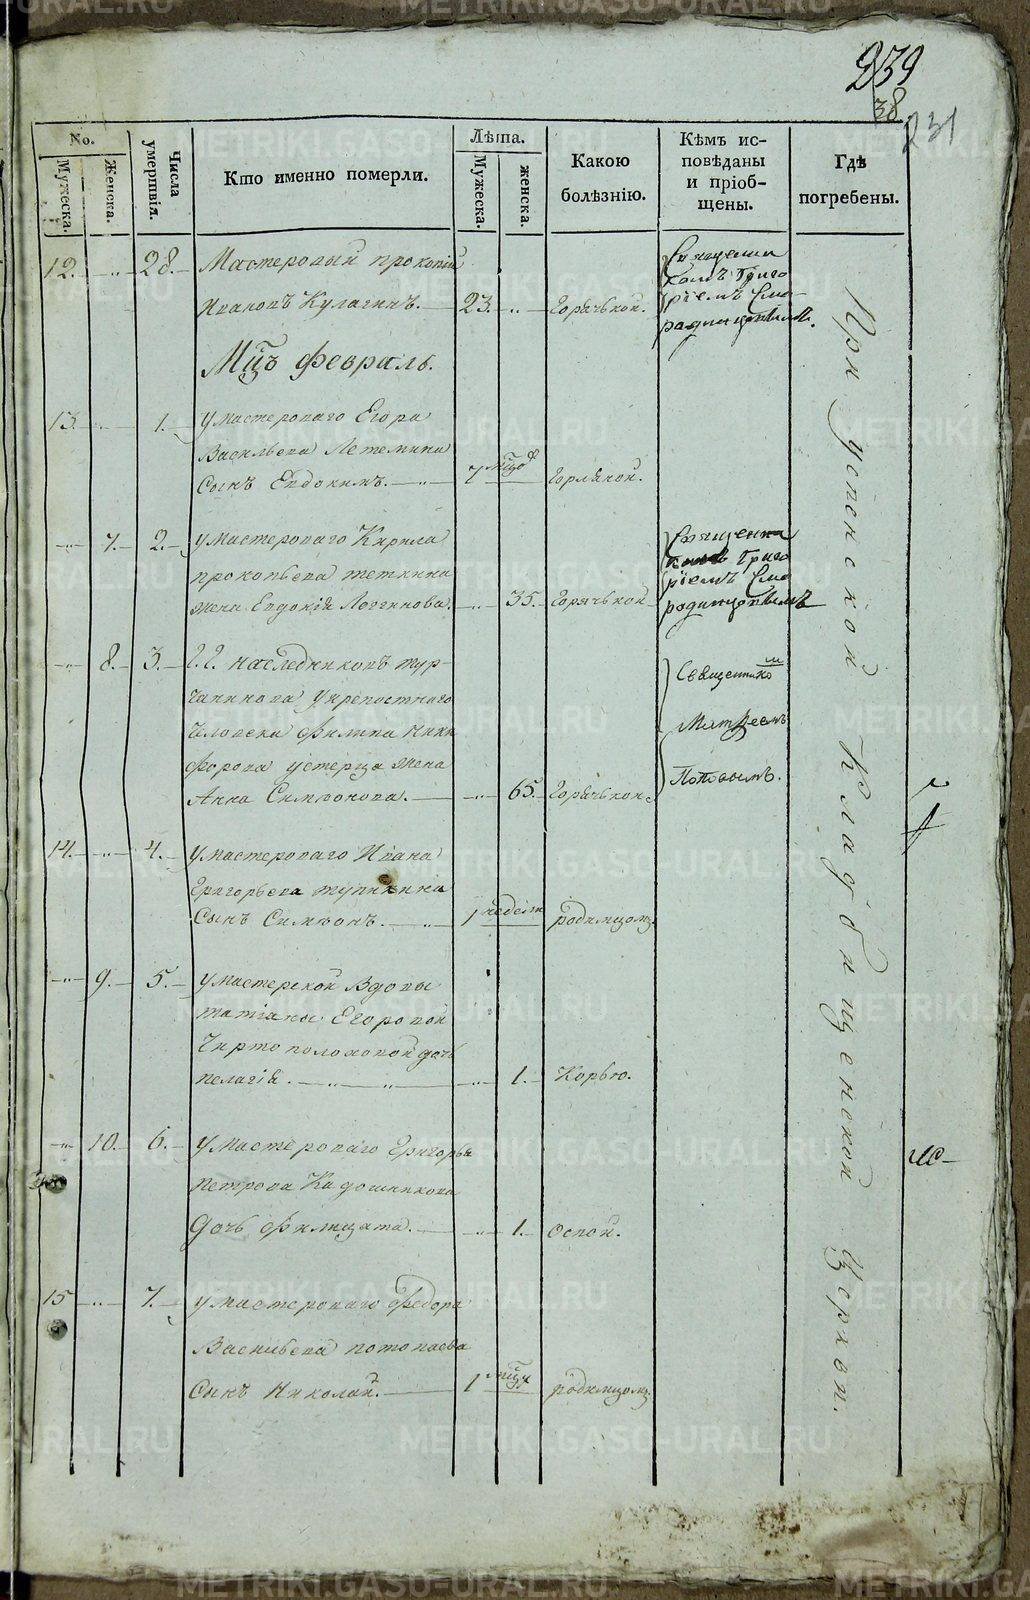 239
38
231
No.
Мужеска.
Женска.
Числа умертвія.
Кто именно померли.
Лѣта.
Мужеска.
женска.
Какою болѣзнію.
Кѣмъ ис-
повѣданы
и пріоб-
щены.
Гдѣ
погребены.
12. 28. Мастеровый прокопій
Ивановъ Кулагинъ. 23. Горячькой.
Священни
комъ Григо
ріемъ Смо
родинцовымъ.
Мцъ февраль.
13. 1. умастероваго Егора
Васильева Летемина
Сынъ Евдокимъ. 7 мцов Горляной.
7. 2. умастероваго Кирила
прокопьева теткина
жена Евдокія Логгинова. 35. Горячькой
Священни
комъ Григо
ріемъ Смо
родинцовымъ
8. 3. Г.Г. наследниковъ тур-
чанинова укрепостнаго
человека Филипа Ники
форова устерца жена
Анна Симеонова. 65. Горячькой.
Священико
Матѳеемъ
Поповымъ.
14. 4. умастероваго Ивана
Григорьева тупикина
Сынъ Симеонъ. 1 недели родимцомъ
9. 5. умастерской Вдовы
татіаны Егоровой
Чертополоховой дочь
пелагія. 1. Корью.
10. 6. умастероваго Григорья
петрова Кадошникова
Дочь Филицата. 1. оспой.
15 7. умастероваго Федора
Васильева потопаева
Сынъ Николай. 1 мцу родимцомъ
При успенской Кладбищенской Церкви.
METRIKI.GASO-URAL.RU